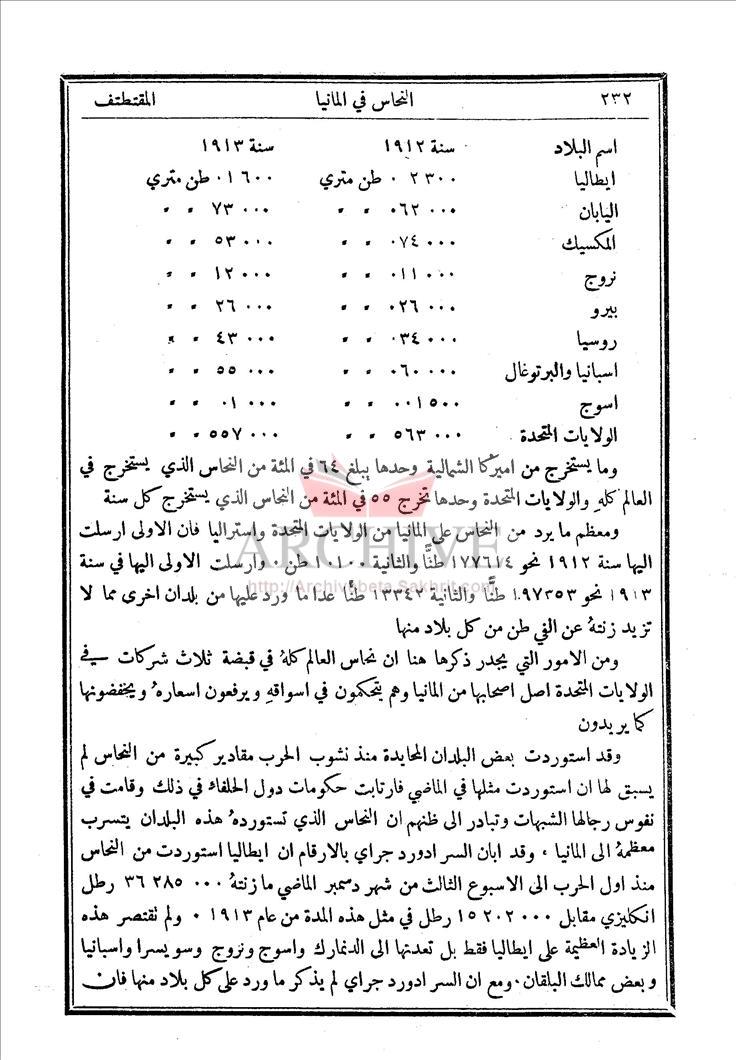 ٢٣٢ النحاس في المانيا المقتطف
اسم البلاد سنة ١٩١٢ سنة ١٩١٣
ايطاليا ٠٠٢٣٠٠ طن متري ٠١٦٠٠ طن متري
اليابان ٠٦٢٠٠٠ " " ٧٣٠٠٠ " "
المكسيك ٠٧٤٠٠٠ " " ٥٣٠٠٠ " "
نروج ٠١١٠٠٠ " " ١٢٠٠٠ " "
بيرو ٠٢٦٠٠٠ " " ٢٦٠٠٠ " "
روسيا ٠٣٤٠٠٠ " " ٤٣٠٠٠ " "
اسبانيا والبرتوغال ٠٦٠٠٠٠ " " ٥٥٠٠٠ " "
اسوج ٠٠١٥٠٠ " " ٠١٠٠٠ " "
الولايات المتحدة ٥٦٣٠٠٠ " " ٥٥٧٠٠٠ " "
وما يستخرج من اميركا الشمالية وحدها يبلغ ٦٤ في المئة من النحاس الذي يستخرج في
العالم كله والولايات المتحدة وحدها تخرج ٥٥ في المئة من النحاس الذي يستخرج كل سنة
ومعظم ما يرد من النحاس على المانيا من الولايات المتحدة واستراليا فان الاولى ارسلت
اليها سنة ١٩١٢ نحو ١٧٧٦١٤ طنًّا والثانية ١٠١٠٠ طن. وارسلت الاولى اليها في سنة
١٩١٣ نحو ١٩٧٣٥٣ طنًّا والثانية ١٣٣٤٢ طنًّا عدا ما ورد عليها من بلدان اخرى مما لا
تزيد زنتهُ عن الفي طن من كل بلاد منها
ومن الامور التي يجدر ذكرها هنا ان نحاس العالم كلهُ في قبضة ثلاث شركات في
الولايات المتحدة اصل اصحابها من المانيا وهم يتحكمون في اسواقهِ ويرفعون اسعارهُ ويخفضونها
كما يريدون
وقد استوردت بعض البلدان المحايدة منذ نشوب الحرب مقادير كبيرة من النحاس لم
يسبق لها ان استوردت مثلها في الماضي فارتابت حكومات دول الحلفاء في ذلك وقامت في
نفوس رجالها الشبهات وتبادر الى ظنهم ان النحاس الذي تستوردهُ هذه البلدان يتسرب
معظمهُ الى المانيا، وقد ابان السر ادورد جراي بالارقام ان ايطاليا استوردت من النحاس
منذ اول الحرب الى الاسبوع الثالث من شهر دسمبر الماضي ما زنتهُ ٣٦٢٨٥٠٠٠ رطل
انكليزي مقابل ١٥٢٠٢٠٠٠ رطل في مثل هذه المدة من عام ١٩١٣. ولم تقتصر هذه
الزيادة العظيمة على ايطاليا فقط بل تعدتها الى الدنمارك واسوج ونروج وسويسرا واسبانيا
وبعض ممالك البلقان. ومع ان السر ادورد جراي لم يذكر ما ورد على كل بلاد منها فان
ARCHIVE
http://Archivebeta.Sakhrit.com